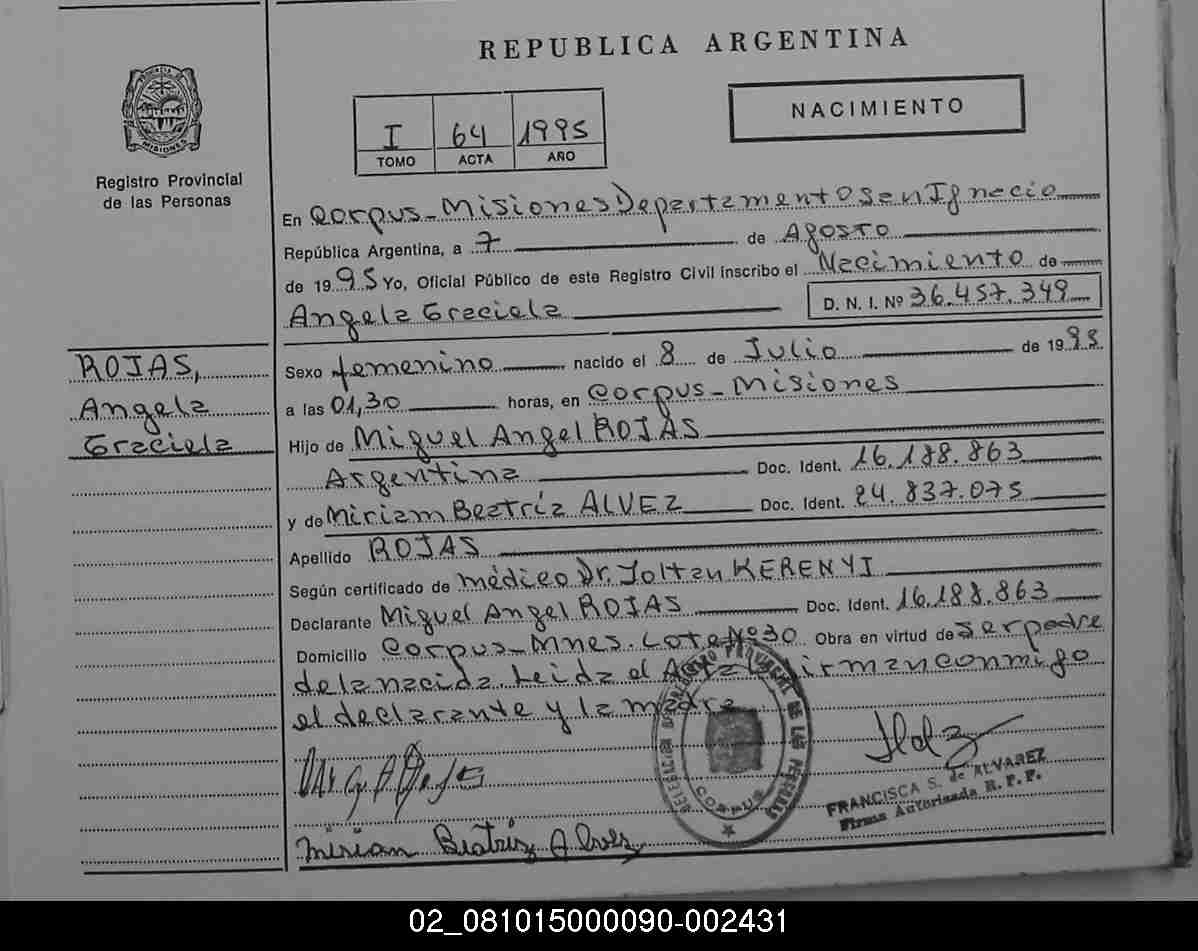 REPUBLICA ARGENTINA
PROVINCIA DE MISIONES
Registro Provincial
de las Personas
I 64 1995
TOMO ACTA AÑO
NACIMIENTO
En Corpus_Misiones Departamento San Ignacio
República Argentina, a 7 de Agosto
de 1995 Yo, Oficial Público de este Registro Civil inscribo el Nacimiento de
Angela Graciela D. N. I. Nº 36.457.349
ROJAS,
Angela
Graciela
Sexo femenino nacido el 8 de Julio de 1995
a las 01,30 horas, en Corpus_Misiones
Hijo de Miguel Angel ROJAS
Argentina Doc. Ident. 16.188.863
y de Miriam Beatríz ALVEZ Doc. Ident. 24.837.075
Apellido ROJAS
Según certificado de médico Dr. Zoltan KERENYI
Declarante Miguel Angel ROJAS Doc. Ident. 16.188.863
Domicilio Corpus_Mnes. Lote Nº30 Obra en virtud de ser padre
de la nacida. Leida el Acta la firman conmigo
el declarante y la madre
CORPUS
FRANCISCA S. de ALVAREZ
Firma Autorizada R. P. P.
Mirian Beatriz Alvez
02_081015000090-002431